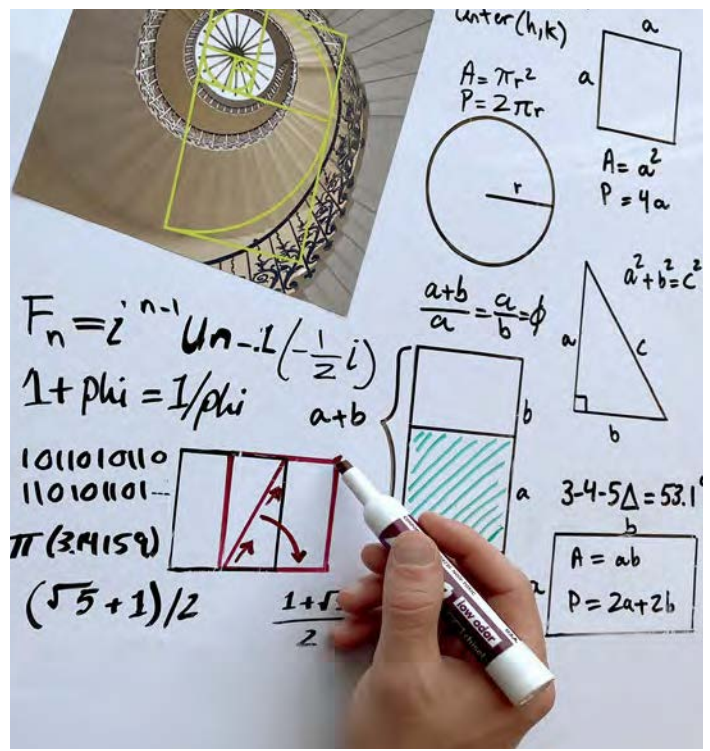 center (h,k)
a
a
A = πr²
P = 2πr
r
A = a²
P = 4a
a² + b² = c²
a
c
b
(a+b)/a = a/b = φ
F_n = i^(n-1) U_n-1(-1/2 i)
1 + phi = 1/phi
a+b
b
a
1011010110
110101101...
π (3.14159)
(√5 + 1)/2
1+√
2
3-4-5Δ = 53.1°
b
A = ab
P = 2a+2b
a
low odor
chisel